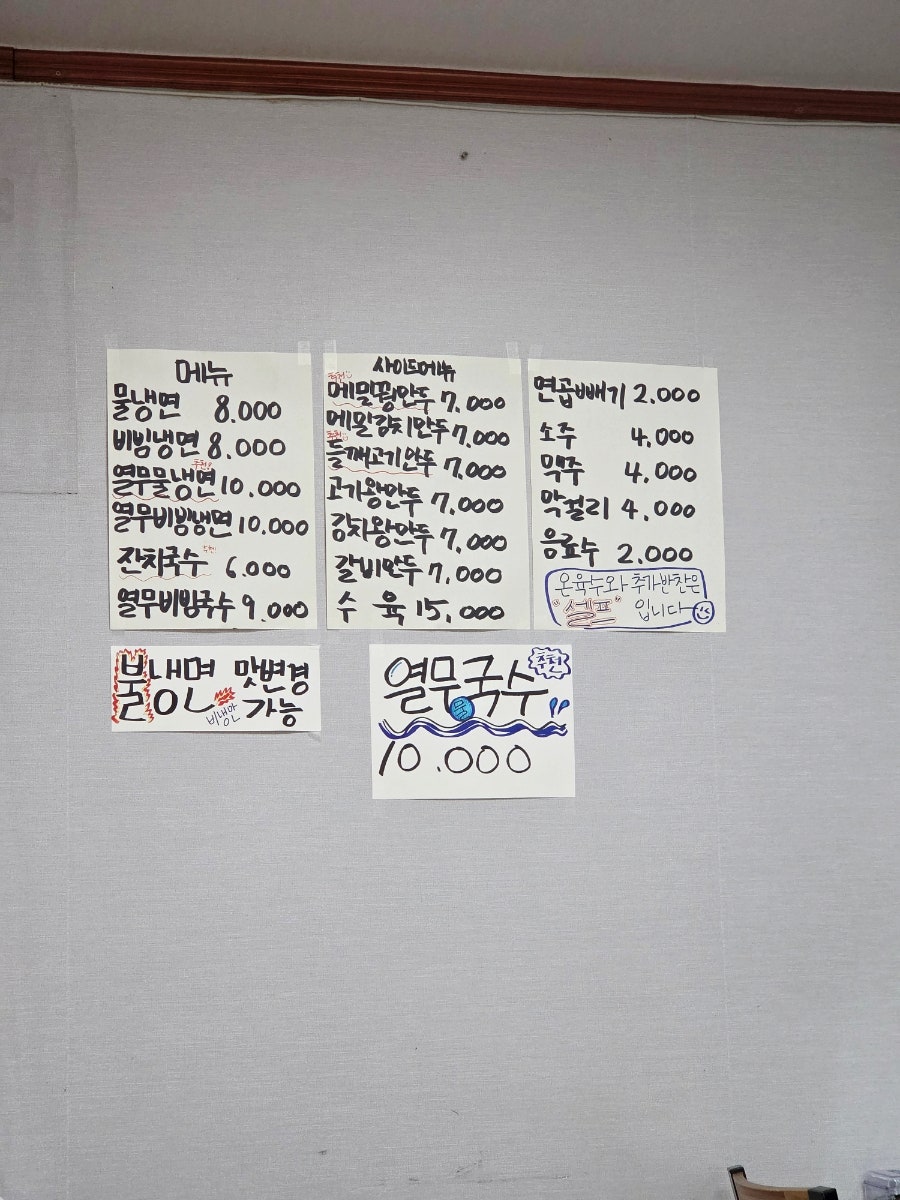 메뉴
물냉면 8.000
비빔냉면 8.000
추천
열무물냉면 10.000
열무비빔냉면 10.000
추천
잔치국수 6.000
열무비빔국수 9.000
사이드메뉴
추천
메밀찐만두 7.000
메밀김치만두 7.000
추천
들깨고기만두 7.000
고기왕만두 7.000
김치왕만두 7.000
갈비만두 7.000
수 육 15.000
면곱빼기 2.000
소주 4.000
맥주 4.000
막걸리 4.000
음료수 2.000
온육수와 추가반찬은
"셀프" 입니다
불냉면 맛변경
비냉만 가능
추천
열무국수
물
10.000